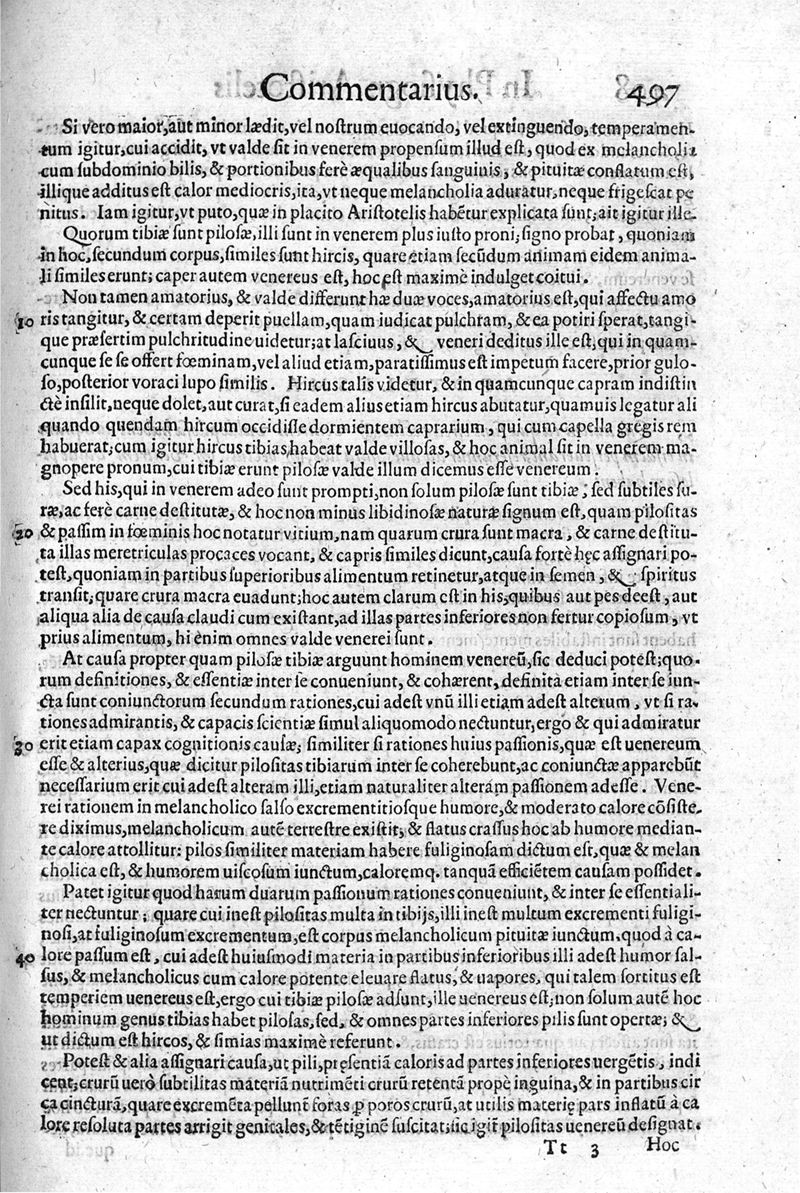 Commentarius. 497
Si vero maior, aut minor lædit, vel nostrum euocando, vel extinguendo, temperamen-
tum igitur, cui accidit, vt valde sit in venerem propensum illud est, quod ex melancholia
cum subdominio bilis, & portionibus ferè æqualibus sanguinis, & pituitæ conflatum est,
illique additus est calor mediocris, ita, vt neque melancholia aduratur, neque frigescat pe
nitus. Iam igitur, vt puto, quæ in placito Aristotelis habẽtur explicata sunt; ait igitur ille.
Quorum tibiæ sunt pilosæ, illi sunt in venerem plus iusto proni; signo probat, quoniam
in hoc, secundum corpus, similes sunt hircis, quare etiam secũdum animam eidem anima-
li similes erunt; caper autem venereus est, hoc est maximè indulget coitui.
Non tamen amatorius, & valde differunt hæ duæ voces, amatorius est, qui affectu amo
10 ris tangitur, & certam deperit puellam, quam iudicat pulchram, & ea potiri sperat, tangi-
que præsertim pulchritudine uidetur; at lasciuus, & veneri deditus ille est; qui in quam-
cunque se se offert fœminam, vel aliud etiam, paratissimus est impetum facere, prior gulo-
so, posterior voraci lupo similis. Hircus talis videtur, & in quamcunque capram indistin
ctè insilit, neque dolet, aut curat, si eadem alius etiam hircus abutatur, quamuis legatur ali
quando quendam hircum occidisse dormientem caprarium, qui cum capella gregis rem
habuerat; cum igitur hircus tibias, habeat valde villosas, & hoc animal sit in venerem ma-
gnopere pronum, cui tibiæ erunt pilosæ valde illum dicemus esse venereum.
Sed his, qui in venerem adeo sunt prompti, non solum pilosæ sunt tibiæ; sed subtiles su-
ræ, ac ferè carne destitutæ, & hoc non minus libidinosæ naturæ signum est, quam pilositas
20 & passim in fœminis hoc notatur vitium, nam quarum crura sunt macra, & carne destitu-
ta illas meretriculas procaces vocant, & capris similes dicunt, causa fortè hęc assignari po-
test, quoniam in partibus superioribus alimentum retinetur, atque in semen, & spiritus
transit; quare crura macra euadunt; hoc autem clarum est in his, quibus aut pes deest, aut
aliqua alia de causa claudi cum existant, ad illas partes inferiores non fertur copiosum, vt
prius alimentum, hi enim omnes valde venerei sunt.
At causa propter quam pilosæ tibiæ arguunt hominem venereũ, sic deduci potest; quo-
rum definitiones, & essentiæ inter se conueniunt, & cohærent, definita etiam inter se iun-
cta sunt coniunctorum secundum rationes, cui adest vnũ illi etiam adest alterum, vt si ra-
tiones admirantis, & capacis scientiæ simul aliquomodo nectuntur, ergo & qui admiratur
30 erit etiam capax cognitionis causæ; similiter si rationes huius passionis, quæ est uenereum
esse & alterius, quæ dicitur pilositas tibiarum inter se coherebunt, ac coniunctæ apparebũt
necessarium erit cui adest alteram illi, etiam naturaliter alteram passionem adesse. Vene-
rei rationem in melancholico salso excrementitiosque humore, & moderato calore cõsiste-
re diximus, melancholicum autẽ terrestre existit; & flatus crassus hoc ab humore median-
te calore attollitur: pilos similiter materiam habere fuliginosam dictum est, quæ & melan
cholica est, & humorem uiscosum iunctum, caloremq. tanquã efficiẽtem causam possidet.
Patet igitur quod harum duarum passionum rationes conueniunt, & inter se essentiali-
ter nectuntur; quare cui inest pilositas multa in tibijs, illi inest multum excrementi fuligi-
nosi, at fuliginosum excrementum, est corpus melancholicum pituitæ iunctum, quod à ca-
40 lore passum est, cui adest huiusmodi materia in partibus inferioribus illi adest humor sal-
sus, & melancholicus cum calore potente eleuare flatus, & uapores, qui talem sortitus est
temperiem uenereus est, ergo cui tibiæ pilosæ adsunt, ille uenereus est; non solum autẽ hoc
hominum genus tibias habet pilosas, sed, & omnes partes inferiores pilis sunt opertæ; &
ut dictum est hircos, & simias maximè referunt.
Potest & alia assignari causa, ut pili, pręsentiã caloris ad partes inferiores uergẽtis, indi
cent; crurũ uerò subtilitas materiã nutrimẽti crurũ retentã propè inguina, & in partibus cir
ca cincturã, quare excremẽta pellunt foras ꝑ poros crurũ, at utilis materię pars inflatũ à ca
lore resoluta partes arrigit genitales, & tẽtiginẽ suscitat; sic igit̃ pilositas uenereũ designat.
Tt 3 Hoc